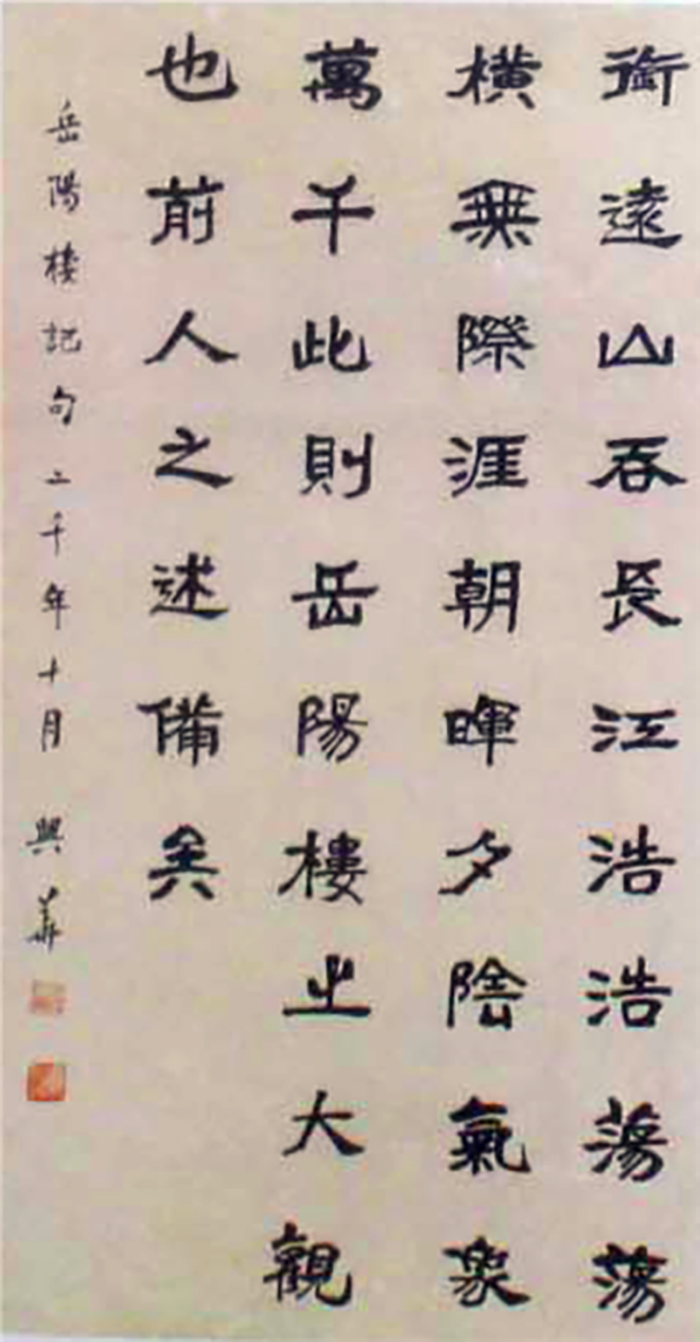 銜遠山吞長江浩浩蕩蕩
橫無際涯朝暉夕陰氣象
萬千此則岳陽樓之大觀
也前人之述備矣
岳陽樓記句二千年十月
興華